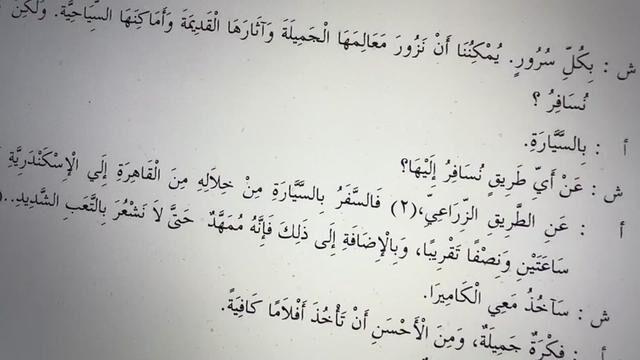 ش : بِكُلِّ سُرُورٍ. يُمْكِنُنَا أَنْ نَزُورَ مَعَالِمَهَا الْجَمِيلَةَ وَآثَارَهَا الْقَدِيمَةَ وَأَمَاكِنَهَا السِّيَاحِيَّةَ. وَلَكِنْ
نُسَافِرُ ؟
أ : بِالسَّيَّارَةِ.
ش : عَنْ أَيِّ طَرِيقٍ نُسَافِرُ إِلَيْهَا؟
أ : عَنِ الطَّرِيقِ الزِّرَاعِيِّ،(٢) فَالسَّفَرُ بِالسَّيَّارَةِ مِنْ خِلَالِهِ مِنَ الْقَاهِرَةِ إِلَي الْإِسْكَنْدَرِيَّةِ
سَاعَتَيْنِ وَنِصْفًا تَقْرِيبًا، وَبِالْإِضَافَةِ إِلَى ذَلِكَ فَإِنَّهُ مُمَهَّدٌ حَتَّى لَا نَشْعُرَ بِالتَّعَبِ الشَّدِيدِ..
ش : سَآخُذُ مَعِي الْكَامِيرَا.
أ : فِكْرَةٌ جَمِيلَةٌ، وَمِنَ الْأَحْسَنِ أَنْ تَأْخُذَ أَفْلَامًا كَافِيَةً.